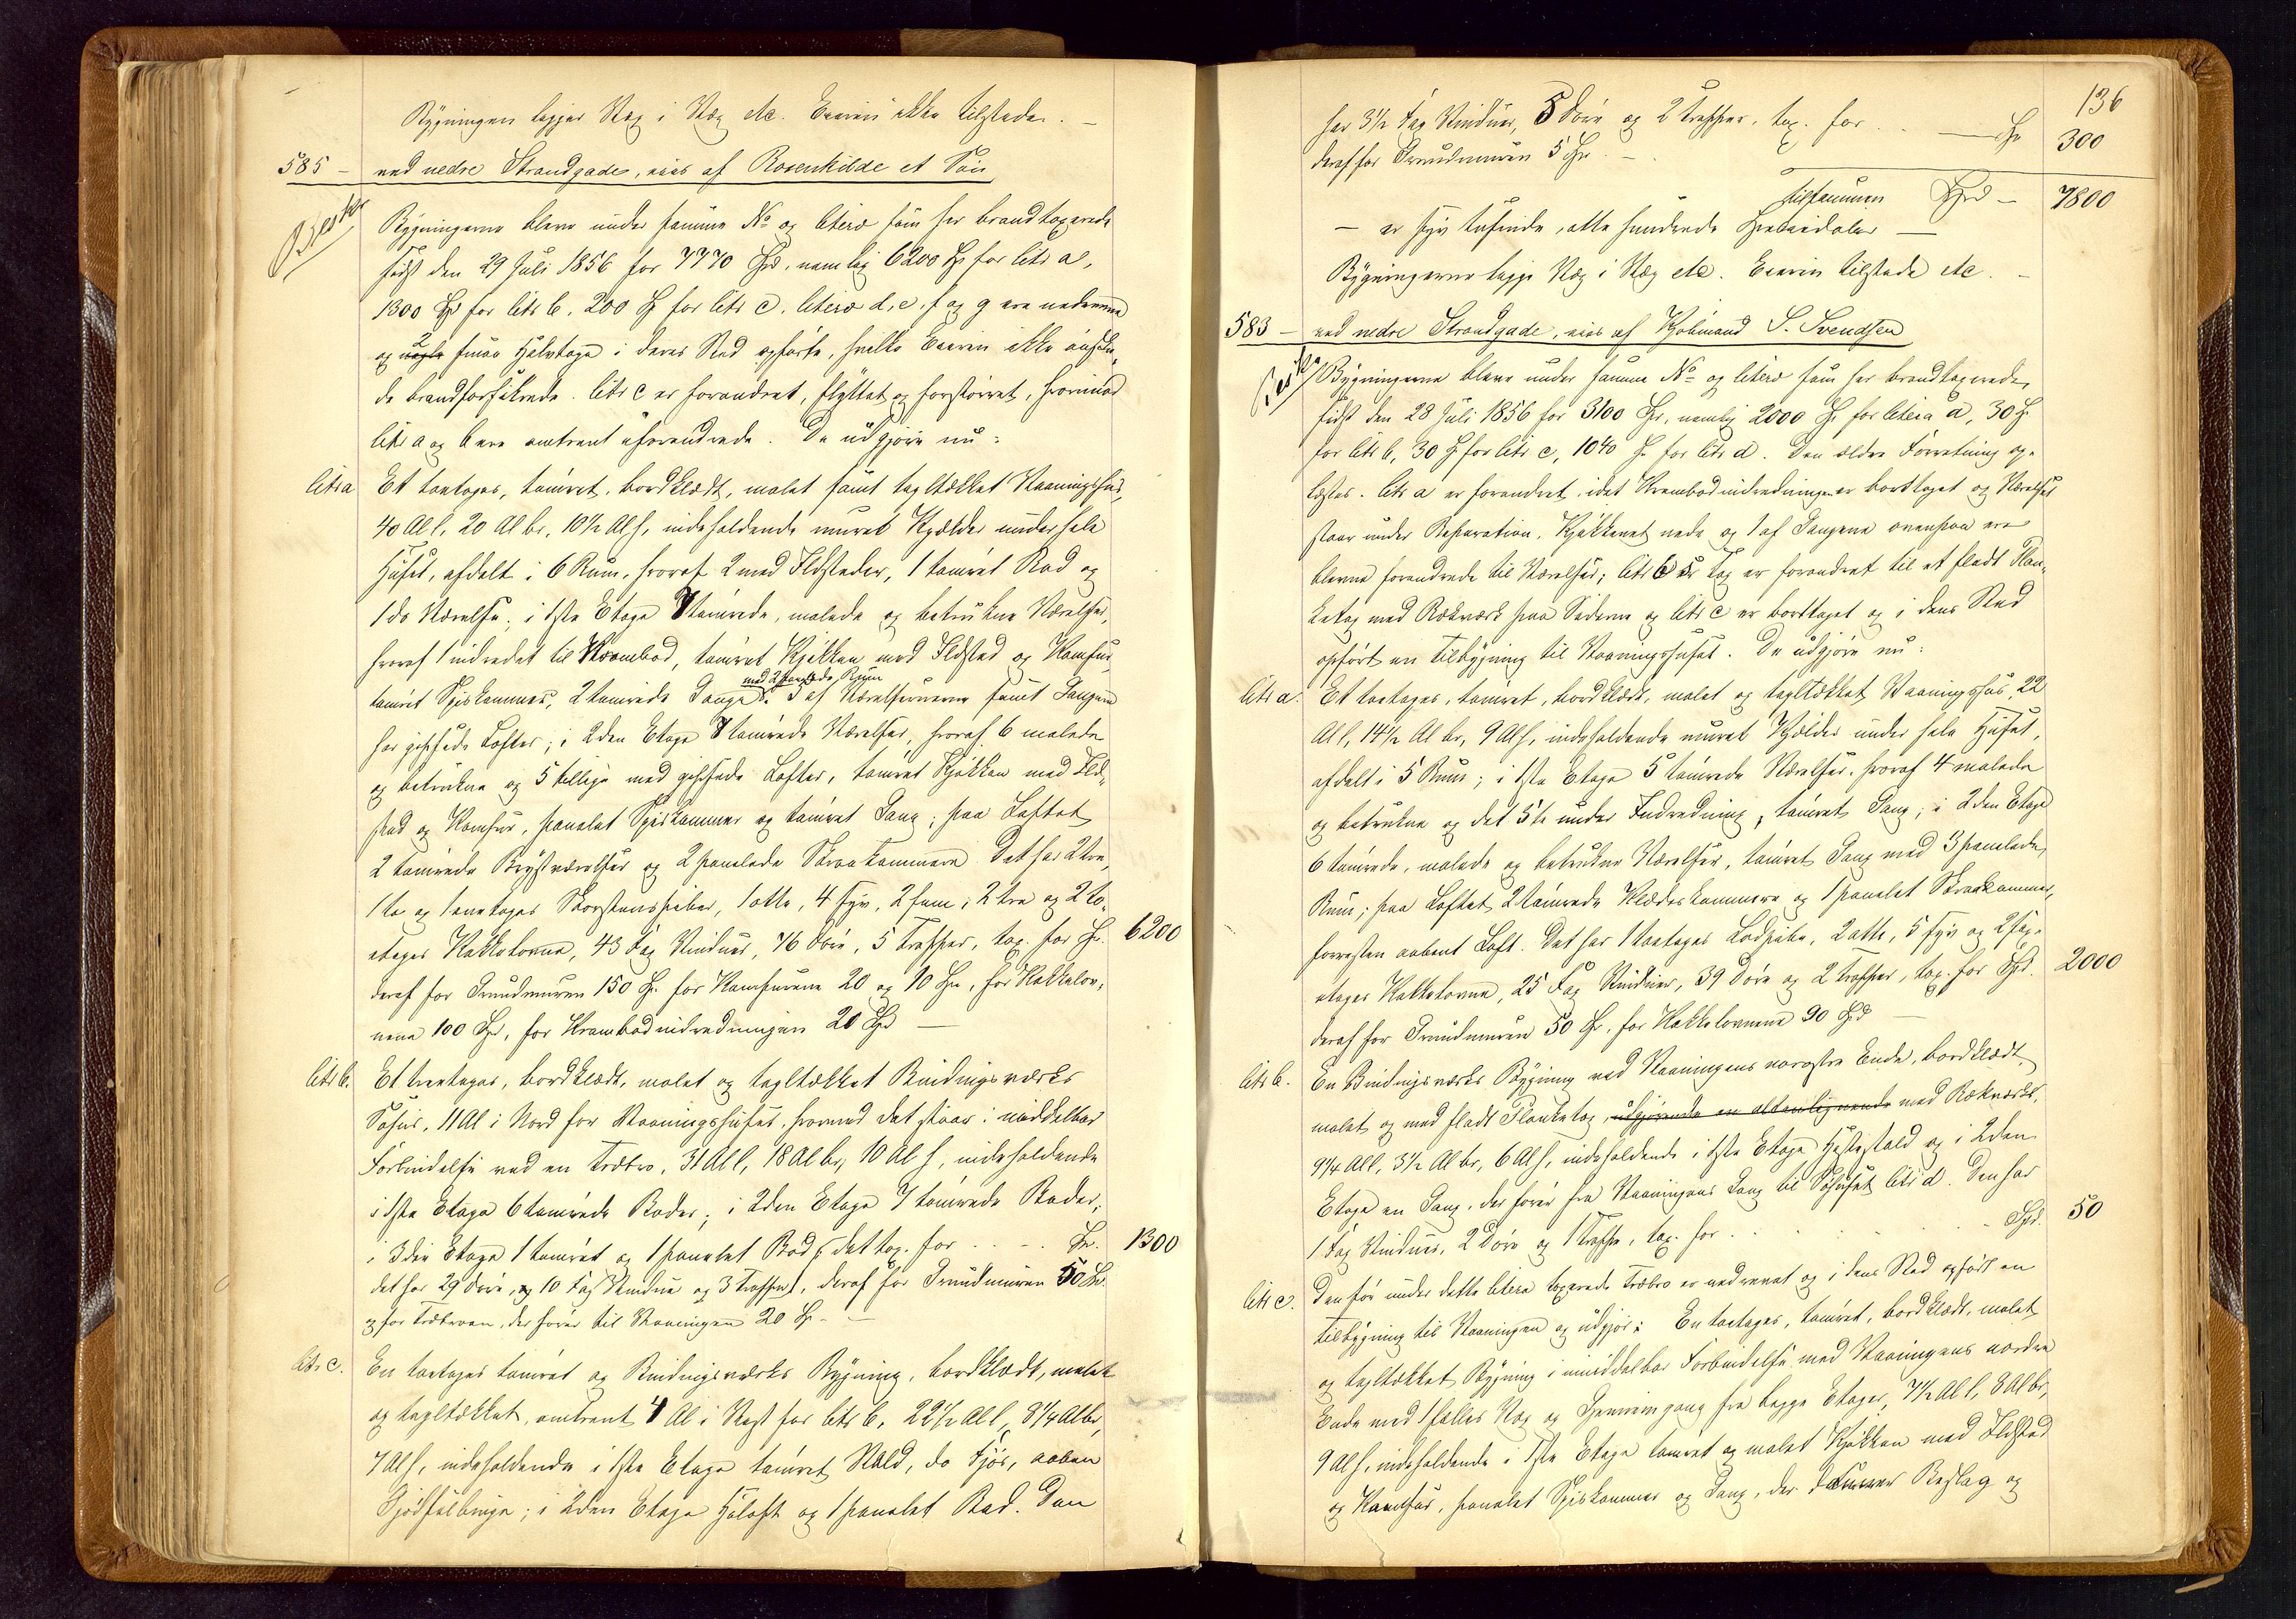 Bygningen ligger Væg i Væg etc. Eieren ikke tilstede. —
585 — ved nedre Strandgade, eies af Rosenkilde et Søn
Bygningerne bleve under samme No og litera som her brandtaxerede
sidst den 29 Juli 1856 for 7770 Spd, nemlig 6200 Sp for litr a,
1300 Spd for litr b, 200 Sp for litr c. litera d, e, f og g ere nedrevne
og 2 smaa Halvtage i deres Sted opførte, hvilke Eieren ikke ønske-
de brandforsikrede. litr c er forandret, flyttet og forstørret, hvorimod
litr a og b ere omtrent uforandrede. De udgjøre nu:
litr a Et toetages, tømret, bordklædt, malet samt tagltækket Vaaningshus,
40 Al l, 20 Al br, 10 1/2 Al h, indeholdende muret Kjælder under hele
Huset, afdelt i 6 Rum, hvoraf 2 med Ildsteder, 1 tømret Bod og
1 do Værelse; i 1ste Etage 8 tømrede, malede og betrukne Værelser,
hvoraf 1 indredet til Krambod, tømret Kjøkken med Ildsted og Komfur,
med 2 Rum
tømret Spiskammer, 2 tømrede Gange. 3 af Værelserne samt Gangene
har gipsede Lofter; i 2den Etage 8 tømrede Værelser, hvoraf 6 malede
og betrukne og 5 tillige med gipsede Lofter, tømret Kjøkken med Ild-
sted og Komfur, panelet Spiskammer og tømret Gang; paa Loftet
2 tømrede Kvistværelser og 2 panelede Skraakammere. Det har 2 tre,
1 to og 1 enetages Skorstenspiber, 1 otte, 4 syv, 2 fem, 2 tre og 2 to-
etages Kakkelovne, 43 Fag Vinduer, 76 Døre, 5 Trapper, tax. for Sp. 6200
deraf for Grundmuren 150 Sp. for Komfurene 20 og 10 Sp, for Kakkelov-
nene 100 Spd, for Krambodindredningen 20 Spd —
litr b. Et treetages, bordklædt, malet og tagltækket Bindingsværks
Søhus, 11 Al i Nord for Vaaningshuset, hvormed det staar i middelbar
Forbindelse ved en Træbro, 31 Al l, 18 Al br, 10 Al h, indeholdende
i 1ste Etage 6 tømrede Boder; i 2den Etage 7 tømrede Boder;
i 3die Etage 1 tømret og 1 panelet Bod (det tax. for . . . . Sp. 1300
det har 29 Døre, og 10 Fag Vinduer og 3 Trapper), deraf for Grundmuren 50 Sp.
og for Træbroen, der fører til Vaaningen 20 Sp. —
litr c. En toetages tømret og Bindingsværks Bygning, bordklædt, malet
og tagltækket, omtrent 4 Al i Vest for litr b, 22 1/2 Al l, 8 1/4 Al br,
7 Al h, indeholdende i 1ste Etage tømret Stald, do Fjøs, aaben
Gjødselbinge; i 2den Etage Høloft og 1 panelet Bod. Den
136
har 3 1/2 Fag Vinduer, 5 Døre og 2 Trapper, tax. for . . — Sp 300
deraf for Grundmuren 5 Sp. —
tilsammen Spd — 7800
— er syv tusinde, otte hundrede Speciedaler —
Bygningerne ligge Væg i Væg etc. Eieren tilstede etc. —
583 — ved nedre Strandgade, eies af Kjøbmand S. Svendsen
Bygningerne bleve under samme No og litera som her brandtaxerede
sidst den 28 Juli 1856 for 3100 Sp, nemlig 2000 Sp for litera a, 30 Sp
for litr b, 30 Sp for litr c, 1040 Sp for litr d. Den ældre Forretning op-
læstes. litr a er forandret, idet Krambodindredningen er borttaget og Værelset
staar under Reparation. Kjøkkenet nede og 1 af Gangene ovenpaa ere
blevne forandrede til Værelser; litr b's Tag er forandret til et fladt Plan-
ketag med Rækværk paa Siderne og litr c er borttaget og i dens Sted
opført en Tilbygning til Vaaningshuset. De udgjøre nu:
litr a. Et toetages, tømret, bordklædt, malet og tagltækket Vaaningshus, 22
Al l, 14 1/2 Al br, 9 Al h, indeholdende muret Kjælder under hele Huset,
afdelt i 5 Rum; i 1ste Etage 5 tømrede Værelser, hvoraf 4 malede
og betrukne og det 5te under Indredning, tømret Gang; i 2den Etage
6 tømrede, malede og betrukne Værelser, tømret Gang med 3 panelede
Rum; paa Loftet 2 tømrede Klædeskammere og 1 panelet Skraakammer,
forresten aabent Loft. Det har 1 toetages Lodpibe, 2 otte, 5 syv og 2 sex-
etages Kakkelovne, 25 Fag Vinduer, 39 Døre og 2 Trapper, tax. for Spd. 2000
deraf for Grundmuren 50 Sp, for Kakkelovnene 90 Spd —
litr b. En Bindingsværks Bygning ved Vaaningens nordostre Ende, bordklædt,
malet og med fladt Planketag, udgjørende en altanlignende med Rækværk,
9 1/4 Al l, 3 1/2 Al br, 6 Al h, indeholdende i 1ste Etage Hestestald og i 2den
Etage en Gang, der fører fra Vaaningens Gang til Søhuset litr d. Den har
1 Fag Vinduer, 2 Døre og 1 Trappe, tax. for . . . . . . . Spd. 50
litr c. Den før under dette litera taxerede Træbro er nedrevet og i dens Sted opført en
Tilbygning til Vaaningen og udgjør: En toetages, tømret, bordklædt, malet
og tagltækket Bygning i umiddelbar Forbindelse med Vaaningens nordre
Ende med 1 fælles Væg og Gjennemgang fra begge Etager, 7 1/2 Al l, 8 Al br,
9 Al h, indeholdende i 1ste Etage tømret og malet Kjøkken med Ildsted
og Komfur, panelet Spiskammer og Gang, der danner Beslag og